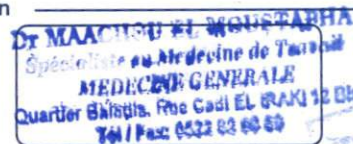 n
Dr MAACHOU EL MOUSTAPHA
Spécialiste en Médecine de Travail
MEDECINE GENERALE
Quartier Rue Cadi EL IRAKI 12
Tél / Fax: 0522